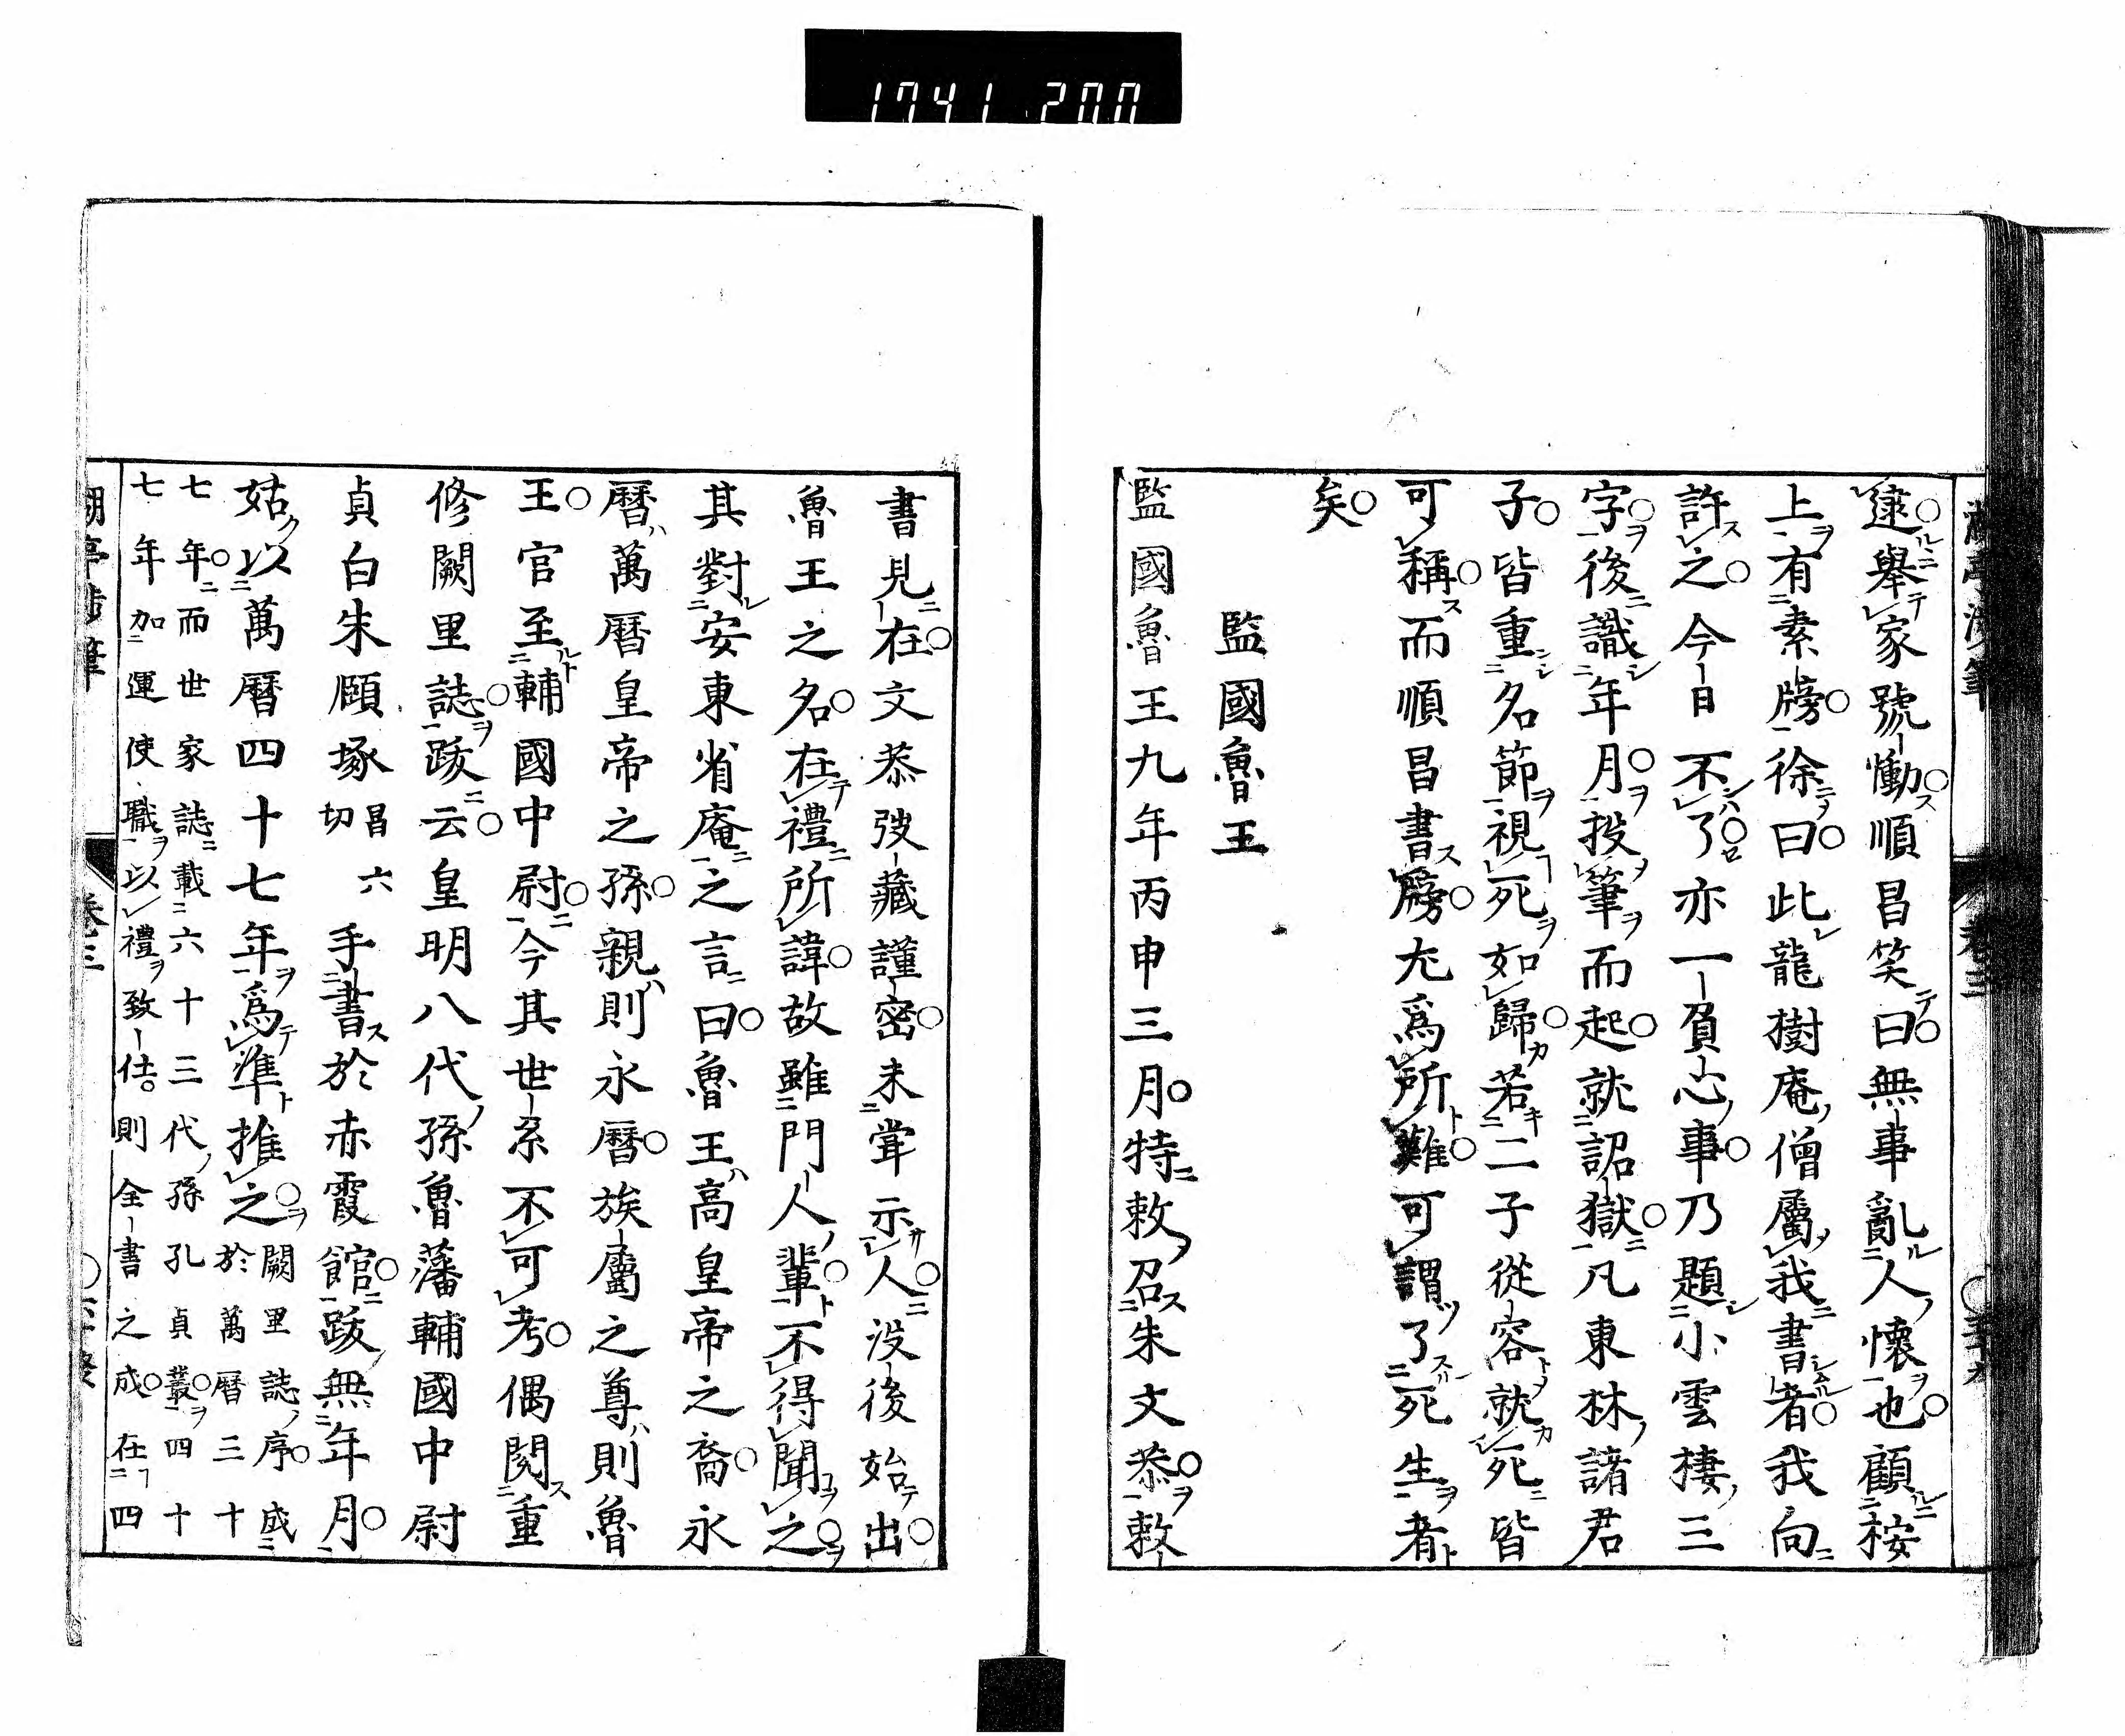 1741 200
逮擧家號慟順昌笑曰無事亂人懷也顧桉
上有素牓徐曰此龍樹庵僧屬我書者我向
許之今日不了亦一負心事乃題小雲棲三
字後識年月投筆而起就詔獄凡東林諸君
子皆重名節視死如歸若二子從容就死皆
可稱而順昌書牓尤爲所難可謂了死生者
矣
監國魯王
監國魯王九年丙申三月特敕召朱文恭敕
書見在文恭弢藏謹密未甞示人没後始出
魯王之名在禮所諱故雖門人輩不得聞之
其對安東省庵之言曰魯王高皇帝之裔永
曆萬曆皇帝之孫親則永曆族屬之尊則魯
王官至輔國中尉今其世系不可考偶閲重
修闕里誌跋云皇明八代孫魯藩輔國中尉
貞白朱頤㙇昌六切手書於赤霞館跋無年月
姑以萬曆四十七年爲準推之闕里誌序成於萬曆三十
七年而世家誌載六十三代孫孔貞叢四十
七年加運使職以禮致仕則全書之成在四
卷三